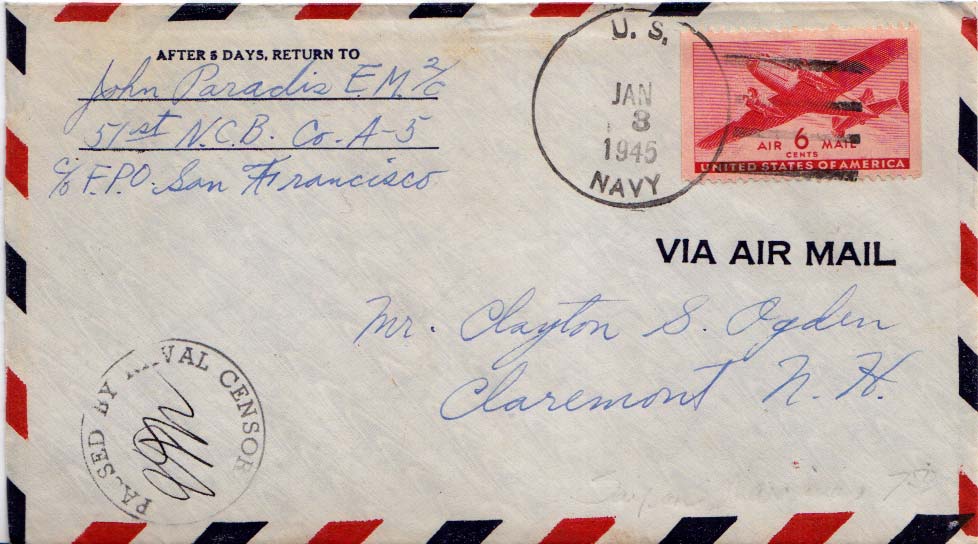 AFTER 5 DAYS, RETURN TO
John Paradis E.M. 2/c
51st N.C.B. Co. A-5
c/o F.P.O. San Francisco
U. S.
JAN
3
1945
NAVY
AIR 6 MAIL
CENTS
UNITED STATES OF AMERICA
VIA AIR MAIL
Mr. Clayton S. Ogden
Claremont N. H.
PASSED BY NAVAL CENSOR